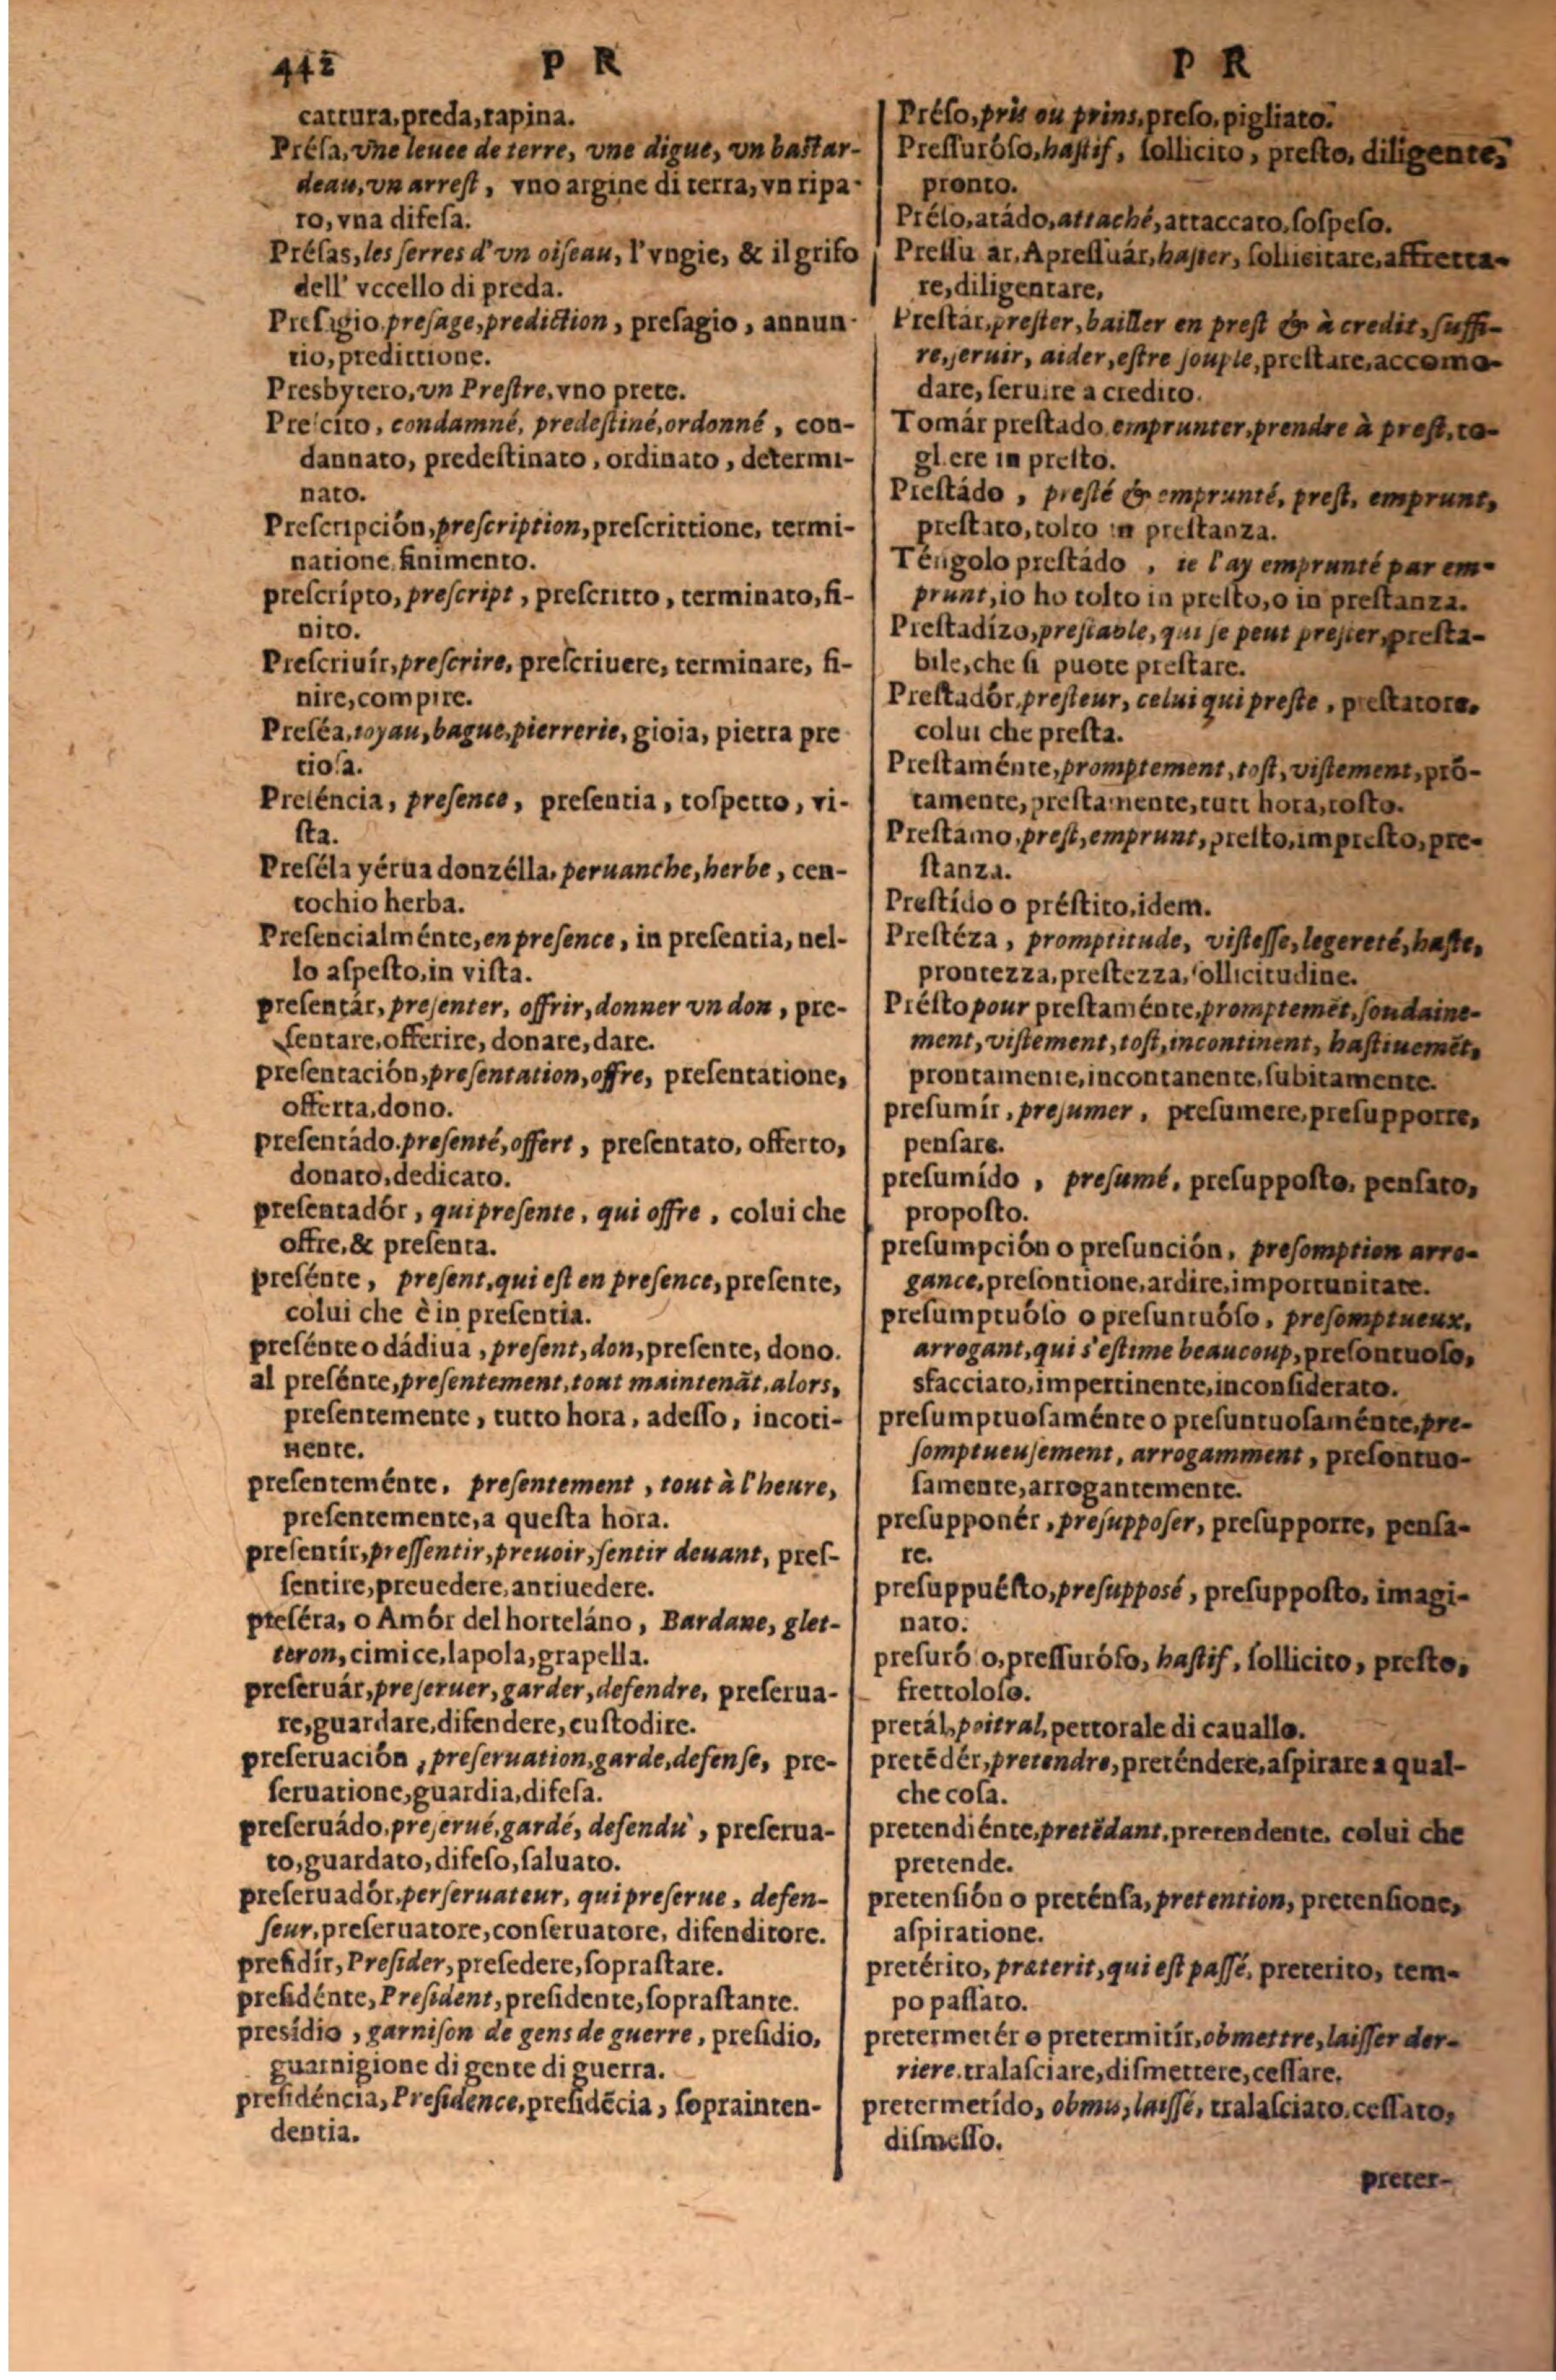 442 P R
cattura,preda,rapina.
Présa,vne leuee de terre, vne digue, vn bastar-
deau,vn arrest, vno argine di terra,vn ripa-
ro,vna difesa.
Présas,les serres d'vn oiseau, l'vngie, & il grifo
dell' vccello di preda.
Presagio,presage,prediction, presagio, annun-
tio,predittione.
Presbytero,vn Prestre,vno prete.
Prescito, condamné, predestiné,ordonné, con-
dannato, predestinato, ordinato, determi-
nato.
Prescripción,prescription,prescrittione, termi-
natione,finimento.
prescrípto,prescript, prescritto, terminato,fi-
nito.
Prescriuír,prescrire, prescriuere, terminare, fi-
nire,compire.
Preséa,ioyau,bague,pierrerie,gioia, pietra pre
tiosa.
Preséncia, presence, presentia, cospetto, vi-
sta.
Preséla yérua donzélla,peruanche,herbe, cen-
tochio herba.
Presencialménte,en presence, in presentia,nel-
lo aspesto,in vista.
presentár,presenter, offrir,donner vn don, pre-
sentare,offerire, donare,dare.
presentación,presentation,offre, presentatione,
offerta,dono.
presentádo.presenté,offert, presentato, offerto,
donato,dedicato.
presentadór, qui presente, qui offre, colui che
offre,& presenta.
presénte, present,qui est en presence,presente,
colui che è in presentia.
presénte o dádiua,present,don,presente, dono.
al presénte,presentement,tout maintenãt,alors,
presentemente, tutto hora, adesso, incoti-
nente.
presenteménte, presentement, tout à l'heure,
presentemente,a questa hora.
presentír,pressentir,preuoir,sentir deuant, pres-
sentire,preuedere,antiuedere.
preséra, o Amór del horteláno, Bardane, glet-
teron,cimice,lapola,grapella.
preseruár,preseruer,garder,defendre, preserua-
re,guardare,difendere,custodire.
preseruación,preseruation,garde,defense, pre-
seruatione,guardia,difesa.
preseruádo,preserué,gardé, defendu, preserua-
to,guardato,difeso,saluato.
preseruadór,perseruateur, qui preserue, defen-
seur,preseruatore,conseruatore, difenditore.
presidír,Presider,presedere,soprastare.
presidénte,President,presidente,soprastante.
presídio, garnison de gens de guerre, presidio,
guarnigione di gente di guerra.
presidéncia,Presidence,presidẽcia, sopraintén-
dentia.
P R
Préso,pris ou prins,preso,pigliato.
Pressuróso,hastif, sollicito, presto, diligente,
pronto.
Préso,atádo,attaché,attaccato,sospeso.
Pressu ar,Apressuár,haster, sollicitare,affretta-
re,diligentare,
Prestár,prester,bailler en prest & à credit,suffi-
re,seruir, aider,estre souple,prestare,accomo-
dare, seruire a credito.
Tomár prestado,emprunter,prendre à prest,to-
gl ere in presto.
Prestádo, presté & emprunté, prest, emprunt,
prestato,tolto in prestanza.
Téngolo prestádo, ie l'ay emprunté par em-
prunt,io ho tolto in presto,o in prestanza.
Prestadízo,prestable,qui se peut prester,presta-
bile,che si puote prestare.
Prestadór,presteur, celui qui preste, prestatore,
colui che presta.
Prestaménte,promptement,tost,vistement,prõ-
tamente,prestamente,tutt hora,tosto.
Prestamo,prest,emprunt,presto,impresto,pre-
stanza.
Prestído o préstito,idem.
Prestéza, promptitude, vistesse,legereté,haste,
prontezza,prestezza,sollicitudine.
Présto pour prestaménte,promptemẽt,soudaine-
ment,vistement,tost,incontinent, hastiuemẽt,
prontamente,incontanente,subitamente.
presumír,presumer, presumere,presupporre,
pensare.
presumído, presumé, presupposto, pensato,
proposto.
presumpción o presunción, presomption arro-
gance,presontione,ardire,importunitate.
presumptuóso o presuntuóso, presomptueux,
arrogant,qui s'estime beaucoup,presontuoso,
sfacciato,impertinente,inconsiderato.
presumptuosaménte o presuntuosaménte,pre-
somptueusement, arrogamment, presontuo-
samente,arrogantemente.
presupponér,presupposer, presupporre, pensa-
re.
presuppuésto,presupposé, presupposto, imagi-
nato.
presuró o,pressuróso, hastif, sollicito, presto,
frettoloso.
pretál,poitral,pettorale di cauallo.
pretẽdér,pretendre,preténdere,aspirare a qual-
che cosa.
pretendiénte,pretẽdant,pretendente, colui che
pretende.
pretensión o preténsa,pretention, pretensione,
aspiratione.
pretérito,præterit,qui est passé, preterito, tem-
po passato.
pretermetér o pretermitír,obmettre,laisser der-
riere,tralasciare,dismettere,cessare.
pretermetído, obmis,laissé, tralasciato,cessato,
dismesso.
preter-